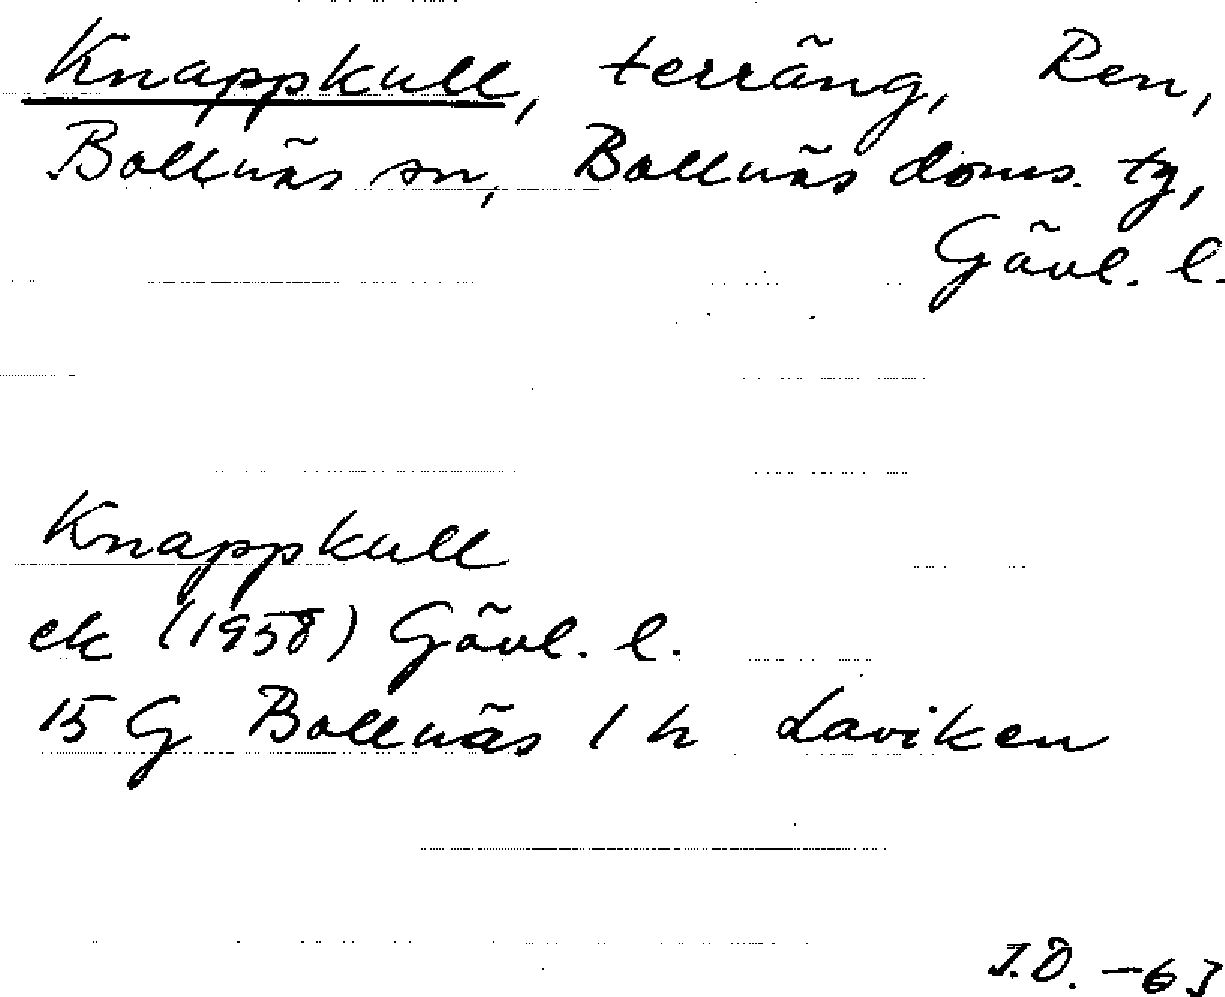 Knappkull, terräng, Ren,
Bollnäs sn, Bollnäs doms. tg,
Gävl. l.
Knappkull
ek (1958) Gävl. l.
15 G Bollnäs 1 h Laviken
I.Ö. -63